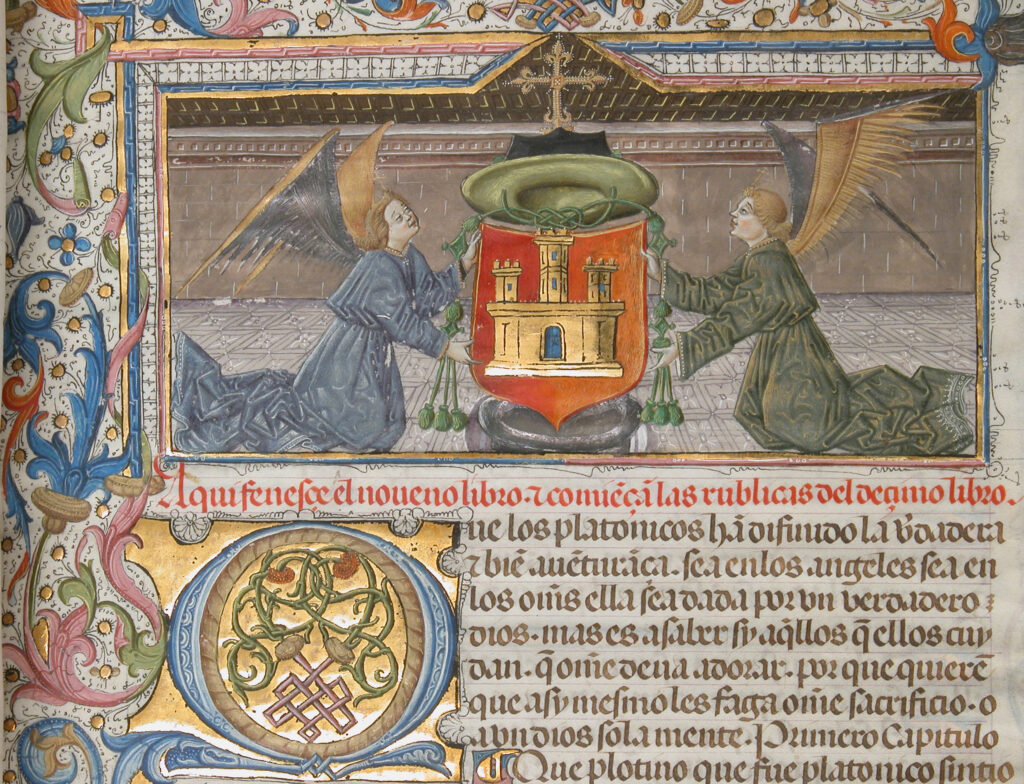 Aqui fenesçe el noueno libro ⁊ comiēçā las rublicas del deçimo libro.
Que los platonicos hā difinido la v̄dadera
⁊ biē auēturāça. sea en los angeles sea en
los om̄s ella sea dada por vn verdadero
dios. mas es a saber sy aq̄llos q̄ ellos cuy
dan. q̄ om̄e deua adorar. por que quierē
que asy mesmo les faga om̄e sacrificio. o
a vn dios sola mente. Primero Capitulo
Que plotino que fue platonico sintio